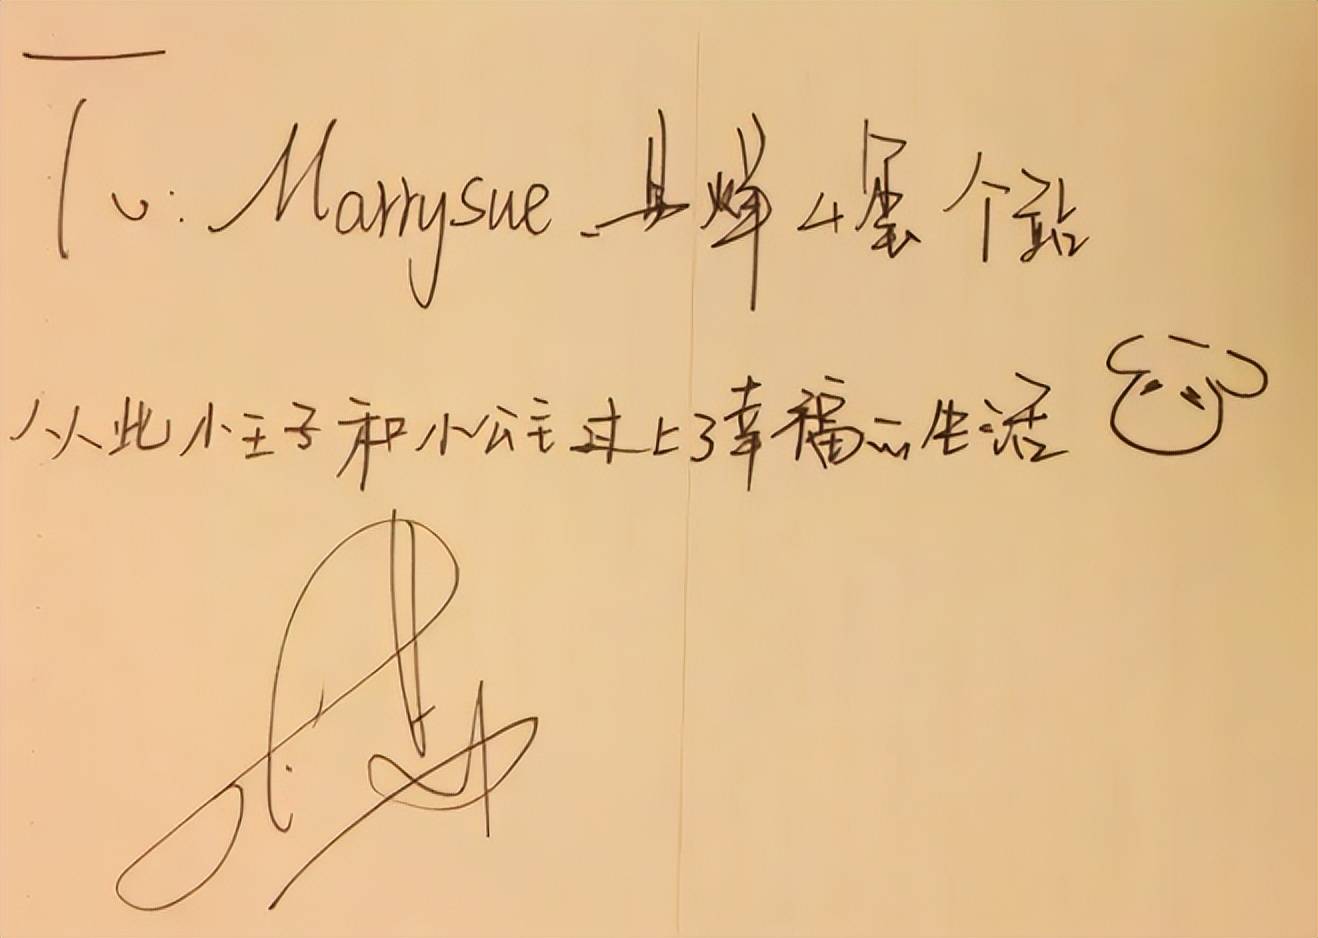 To: Marrysue 个站
从此小王子和小公主过上了幸福的生活